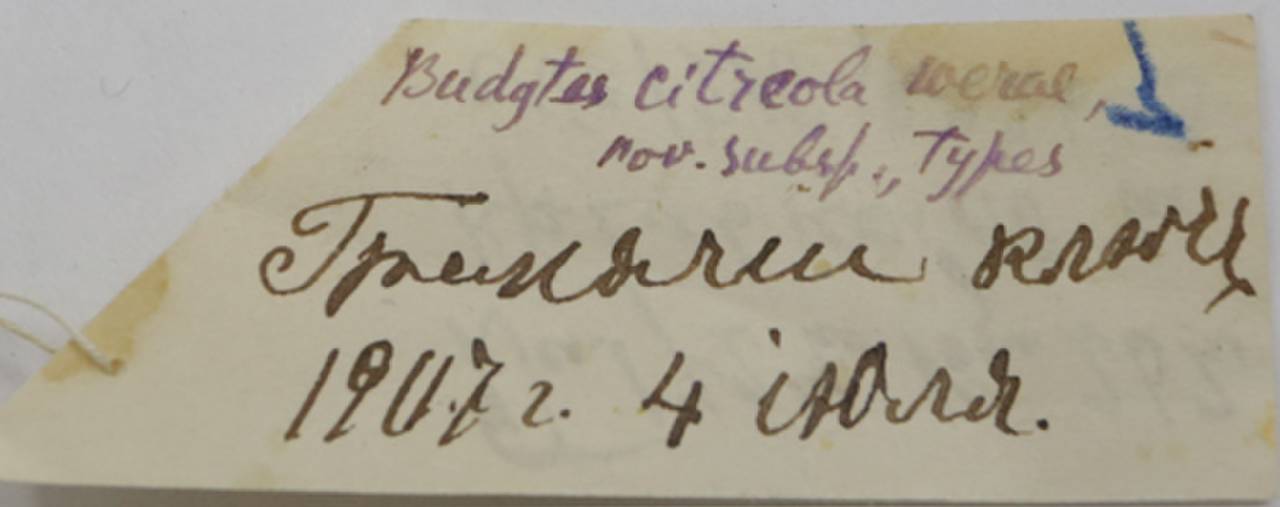 Budytes citreola werae,
nov. subsp., types
Гремячiй ключъ
1907 г. 4 iюля.